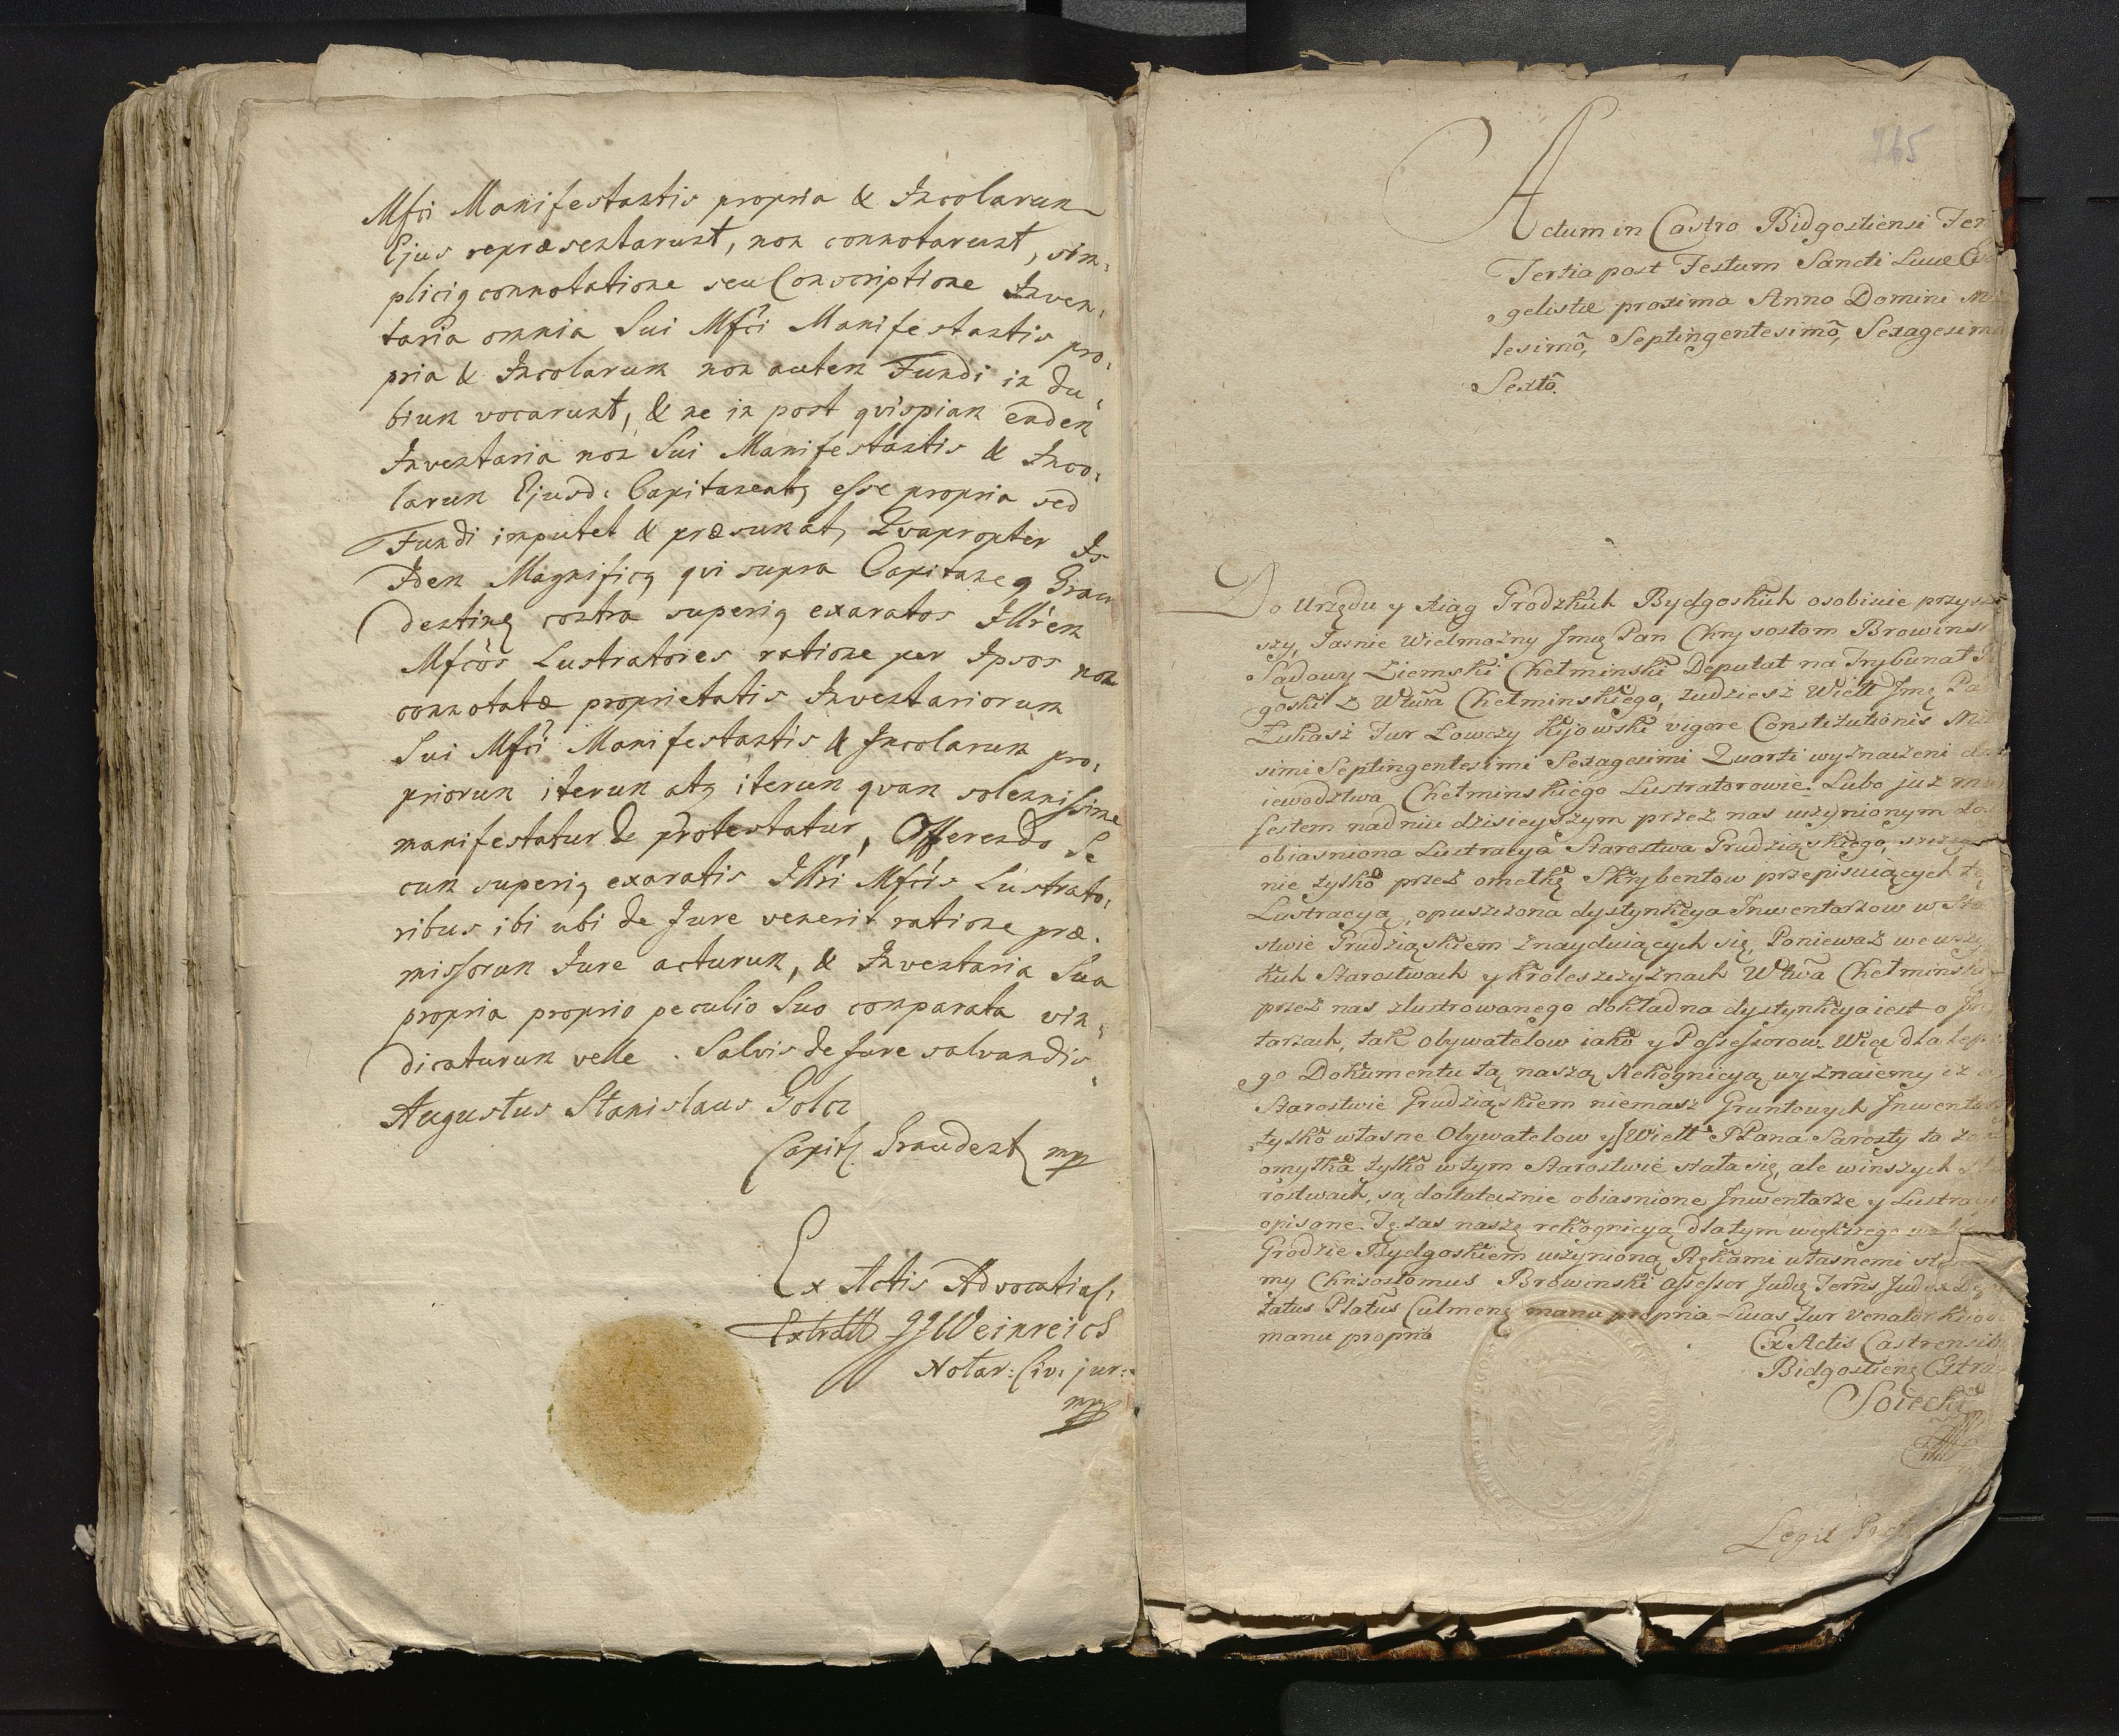 Mfci Manifestantis propria & Incolarum
Ejus repræsentarunt, non connotarunt, sim,
pliciq connotatione seu Conscriptione Inven,
taria omnia Sui Mfci Manifestantis pro,
pria & Incolarum non autem Fundi in du,
bium vocarunt, & ne in post qvispiam eadem
Inventaria non Sui Manifestantis & Inco,
larum Ejusd: Capitaneatq esse propria sed
Fundi imputet & præsumat, Qvapropter Is
Idem Magnificq qvi supra Capitaneq Grau
dentinq contra superiq exaratos Illrem
Mfcos Lustratores ratione per Ipsos non
connotatæ proprietatis Inventariorum
Sui Mfci Manifestantis & Incolarum pro,
priorum iterum atq iterum qvam solennissime
manifestatur & protestatur, Offerendo Se
cum superiq exaratis Illri Mfcis Lustrato,
ribus ibi ubi de Jure venerit ratione præ,
missorum Jure acturum, & Inventaria Sua
propria proprio peculio Suo comparata vin,
dicaturum velle. Salvis de Jure salvandis.
Augustus Stanislaus Goltz
Capit Graudent mp
Ex Actis Advocatial,
Extradit Weinreich
Notar: Civ: jur:
mp
265
Actum in Castro Bidgostiensi Feri
Tertia post Festum Sancti Lucæ
gelistæ proxima Anno Domini
lesimô, Septingentesimô, Sexagesim
Sextô.
Do Urzędu y xiąg Grodzkich Bydgoskich osobiscie przysz
szy, Jasnie Wielmożny Jmę Pan Chrysostom Browins
Sądowy Ziemski Chełminski Deputat na Trybunał
goski z Wtwa Chełminskiego, tudziesz Wielł Jmę Pa
Łukasz Jur Łowczy Kijowski vigore Constitutionis Mil
simi Septingentesimi Sexagesimi Quarti wyznaczeni do
iewodztwa Chełminskiego Lustratorowie. Lubo już
festem nadniu dzisieyszym przez nas uczynionym
obiasniona Lustracya Starostwa Grudziąskiego, szczegul
nie tylko przez omełkę Skrybentow przepisuiących tę
Lustracyą, opuszczona dystynkcya Inwentarzow w Sta
stwie Grudziąskiem znayduiących się, Ponieważ we wszy
kich Starostwach y krolesczyznach Wtwa Chełminski
przez nas zlustrowanego dokładna dystynkcya iest o
tarzach, tak obywatelow iako y Possessorow. Więc dla lep
go Dokumentu tą naszą Rekognicyą wyznaiemy iż
Starostwie Grudziąskiem niemasz Gruntowych Inwentar
tylko własne Obywatelow y Wielł PPana Sarosty ta
omyłka tylko wtym Starostwie stała się, ale winszych
rostwach, są dostatecznie obiasnione Inwentarze y Lustracy
opisane. Tę zas naszę rekognicyą dla tym większego
Grodzie Bydgoskiem uczynioną Rękami własnemi
my Chrisostomus Browinski assessor Judq Terris Judex
tatus Platus Culmenq manu propria Lucas Jur Venator
manu propria
Ex Actis Castrensib
Bidgostienq Extra
Soiecki
Legit